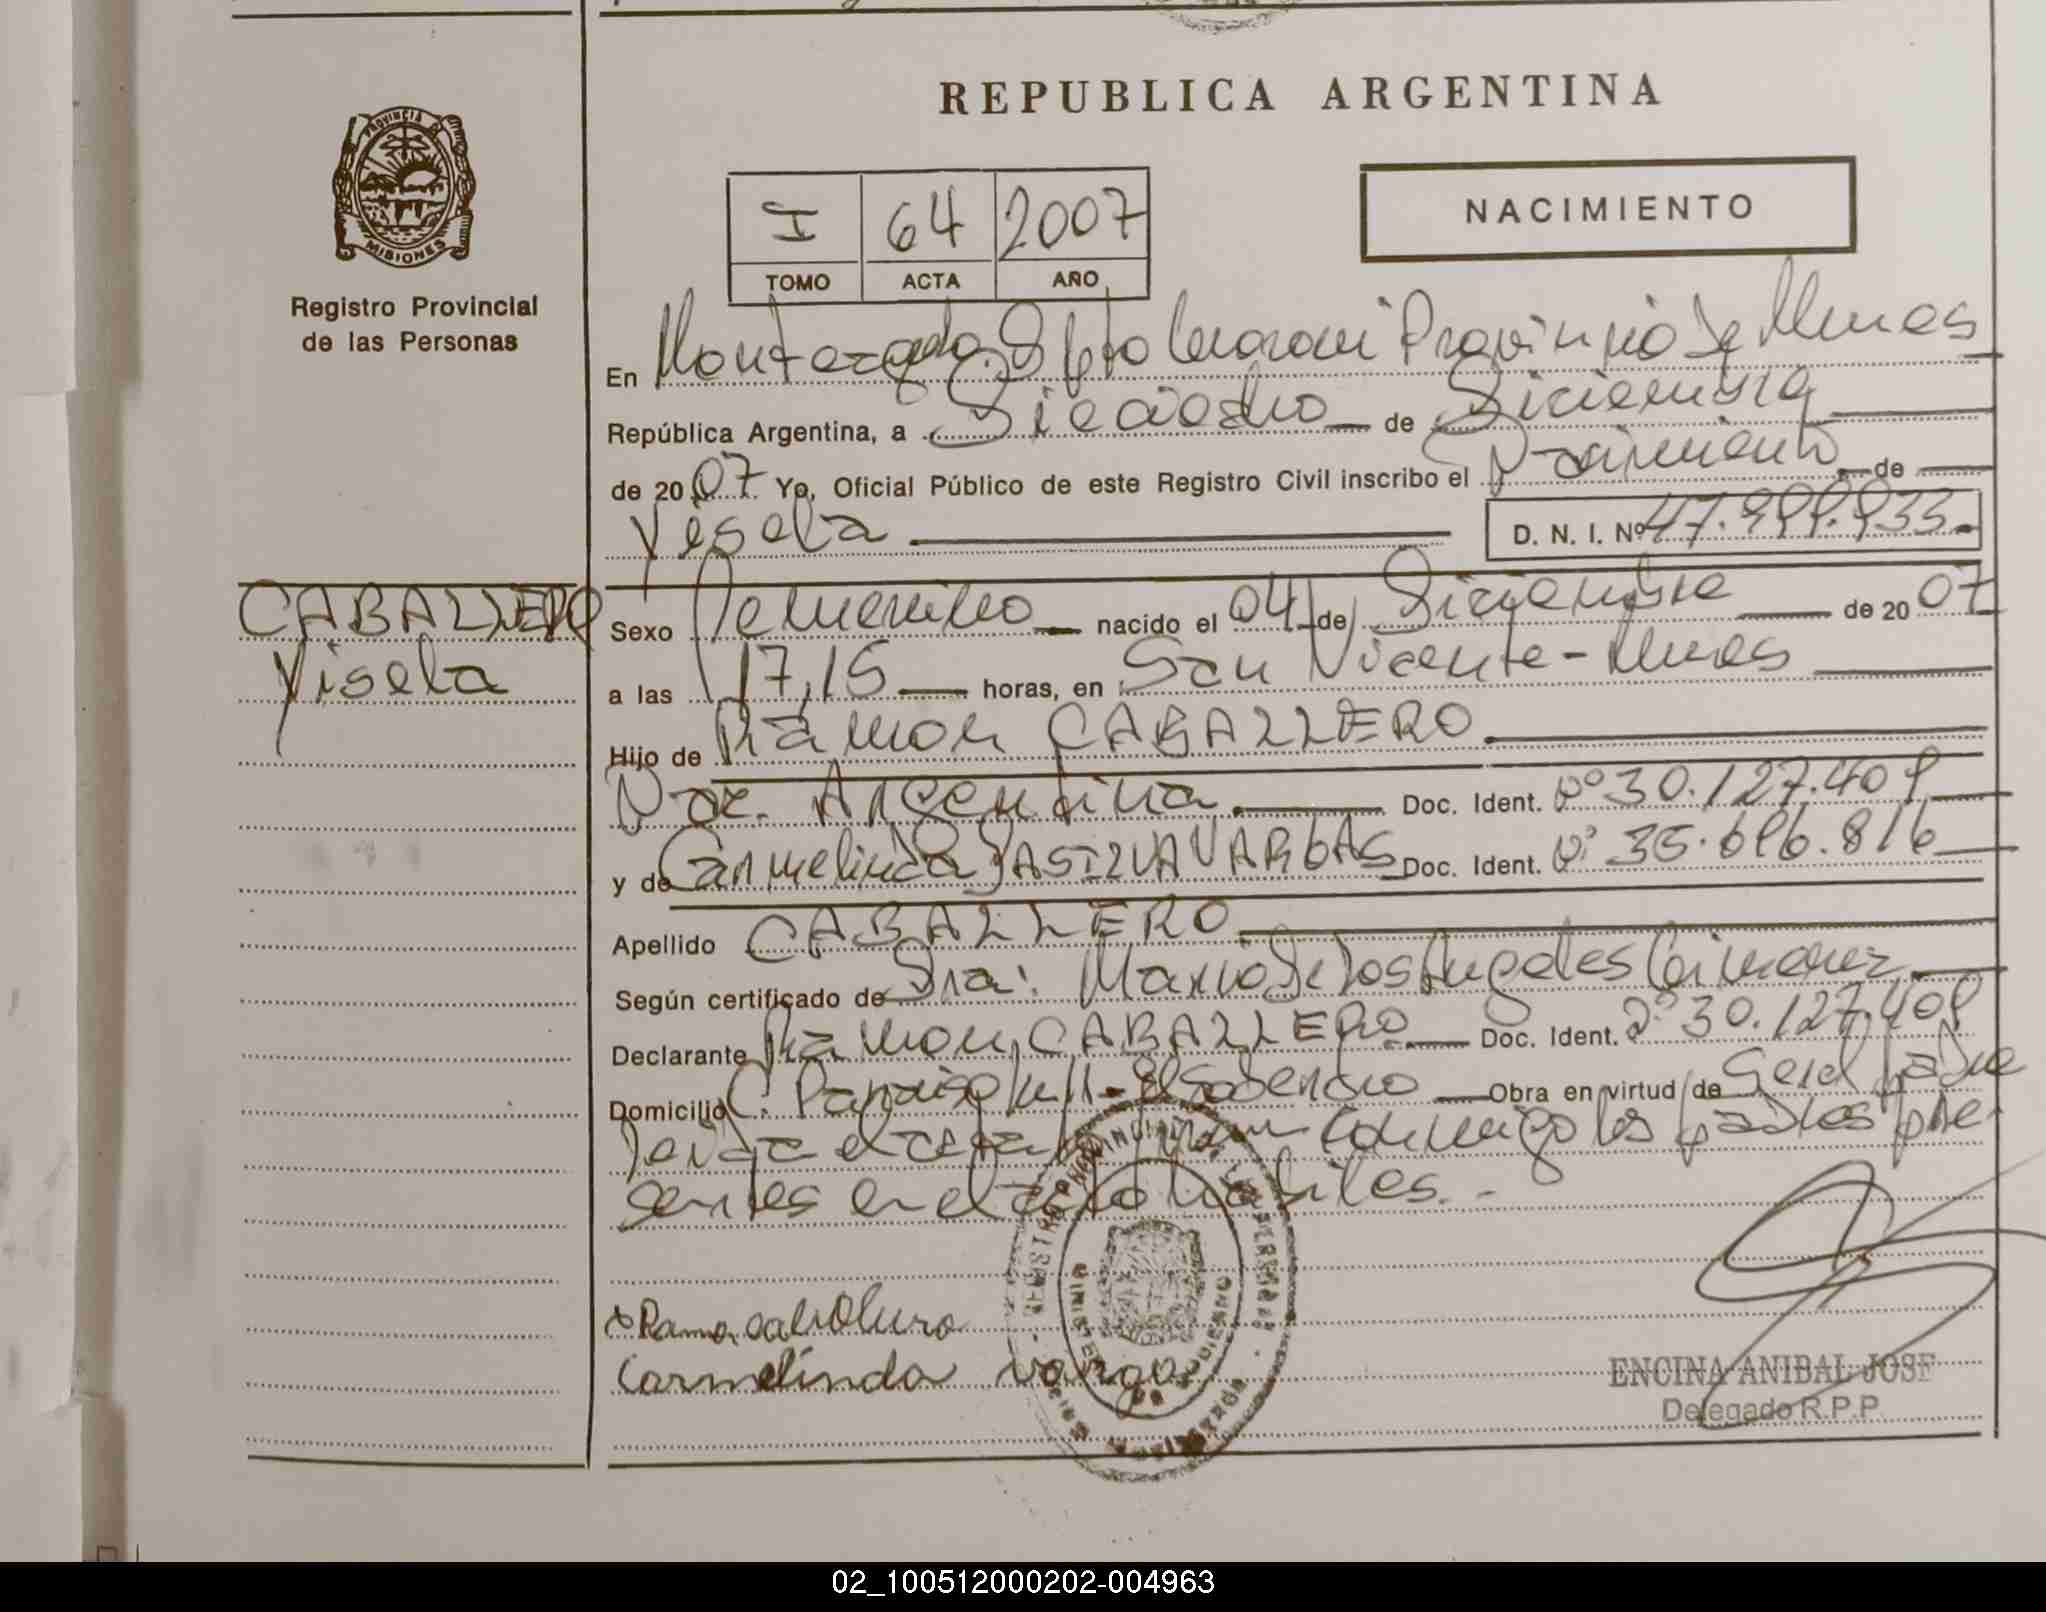 REPUBLICA ARGENTINA
PROVINCIA DE
MISIONES
Registro Provincial
de las Personas
I 64 2007
TOMO ACTA AÑO
NACIMIENTO
En Monteagudo Dpto Guarani Provincia de Mnes
República Argentina, a Dieciocho de Diciembre
de 2007 Yo, Oficial Público de este Registro Civil inscribo el Nacimiento de
Yisela D. N. I. Nº 47.999.933.-
CABALLERO
Yisela
Sexo Femenino nacido el 04 de Diciembre de 2007
a las 17,15 horas, en San Vicente - Mnes
Hijo de Ramon CABALLERO
Nac. Argentina Doc. Ident. Nº 30.127.409
y de Carmelinda DASILVA VARGAS Doc. Ident. Nº 35.696.816
Apellido CABALLERO
Según certificado de Dra: Maria de los Angeles Gimenez
Declarante Ramon CABALLERO Doc. Ident. Nº 30.127.409
Domicilio C. Paraiso - El Soberbio Obra en virtud de Ser el padre
Leida el acta firman conmigo los padres pre
sentes en el acto habiles.-
Ramon caballero
Carmelinda vargas
MINISTERIO DE GOBIERNO
ENCINA ANIBAL JOSE
Delegado R.P.P.
02_100512000202-004963